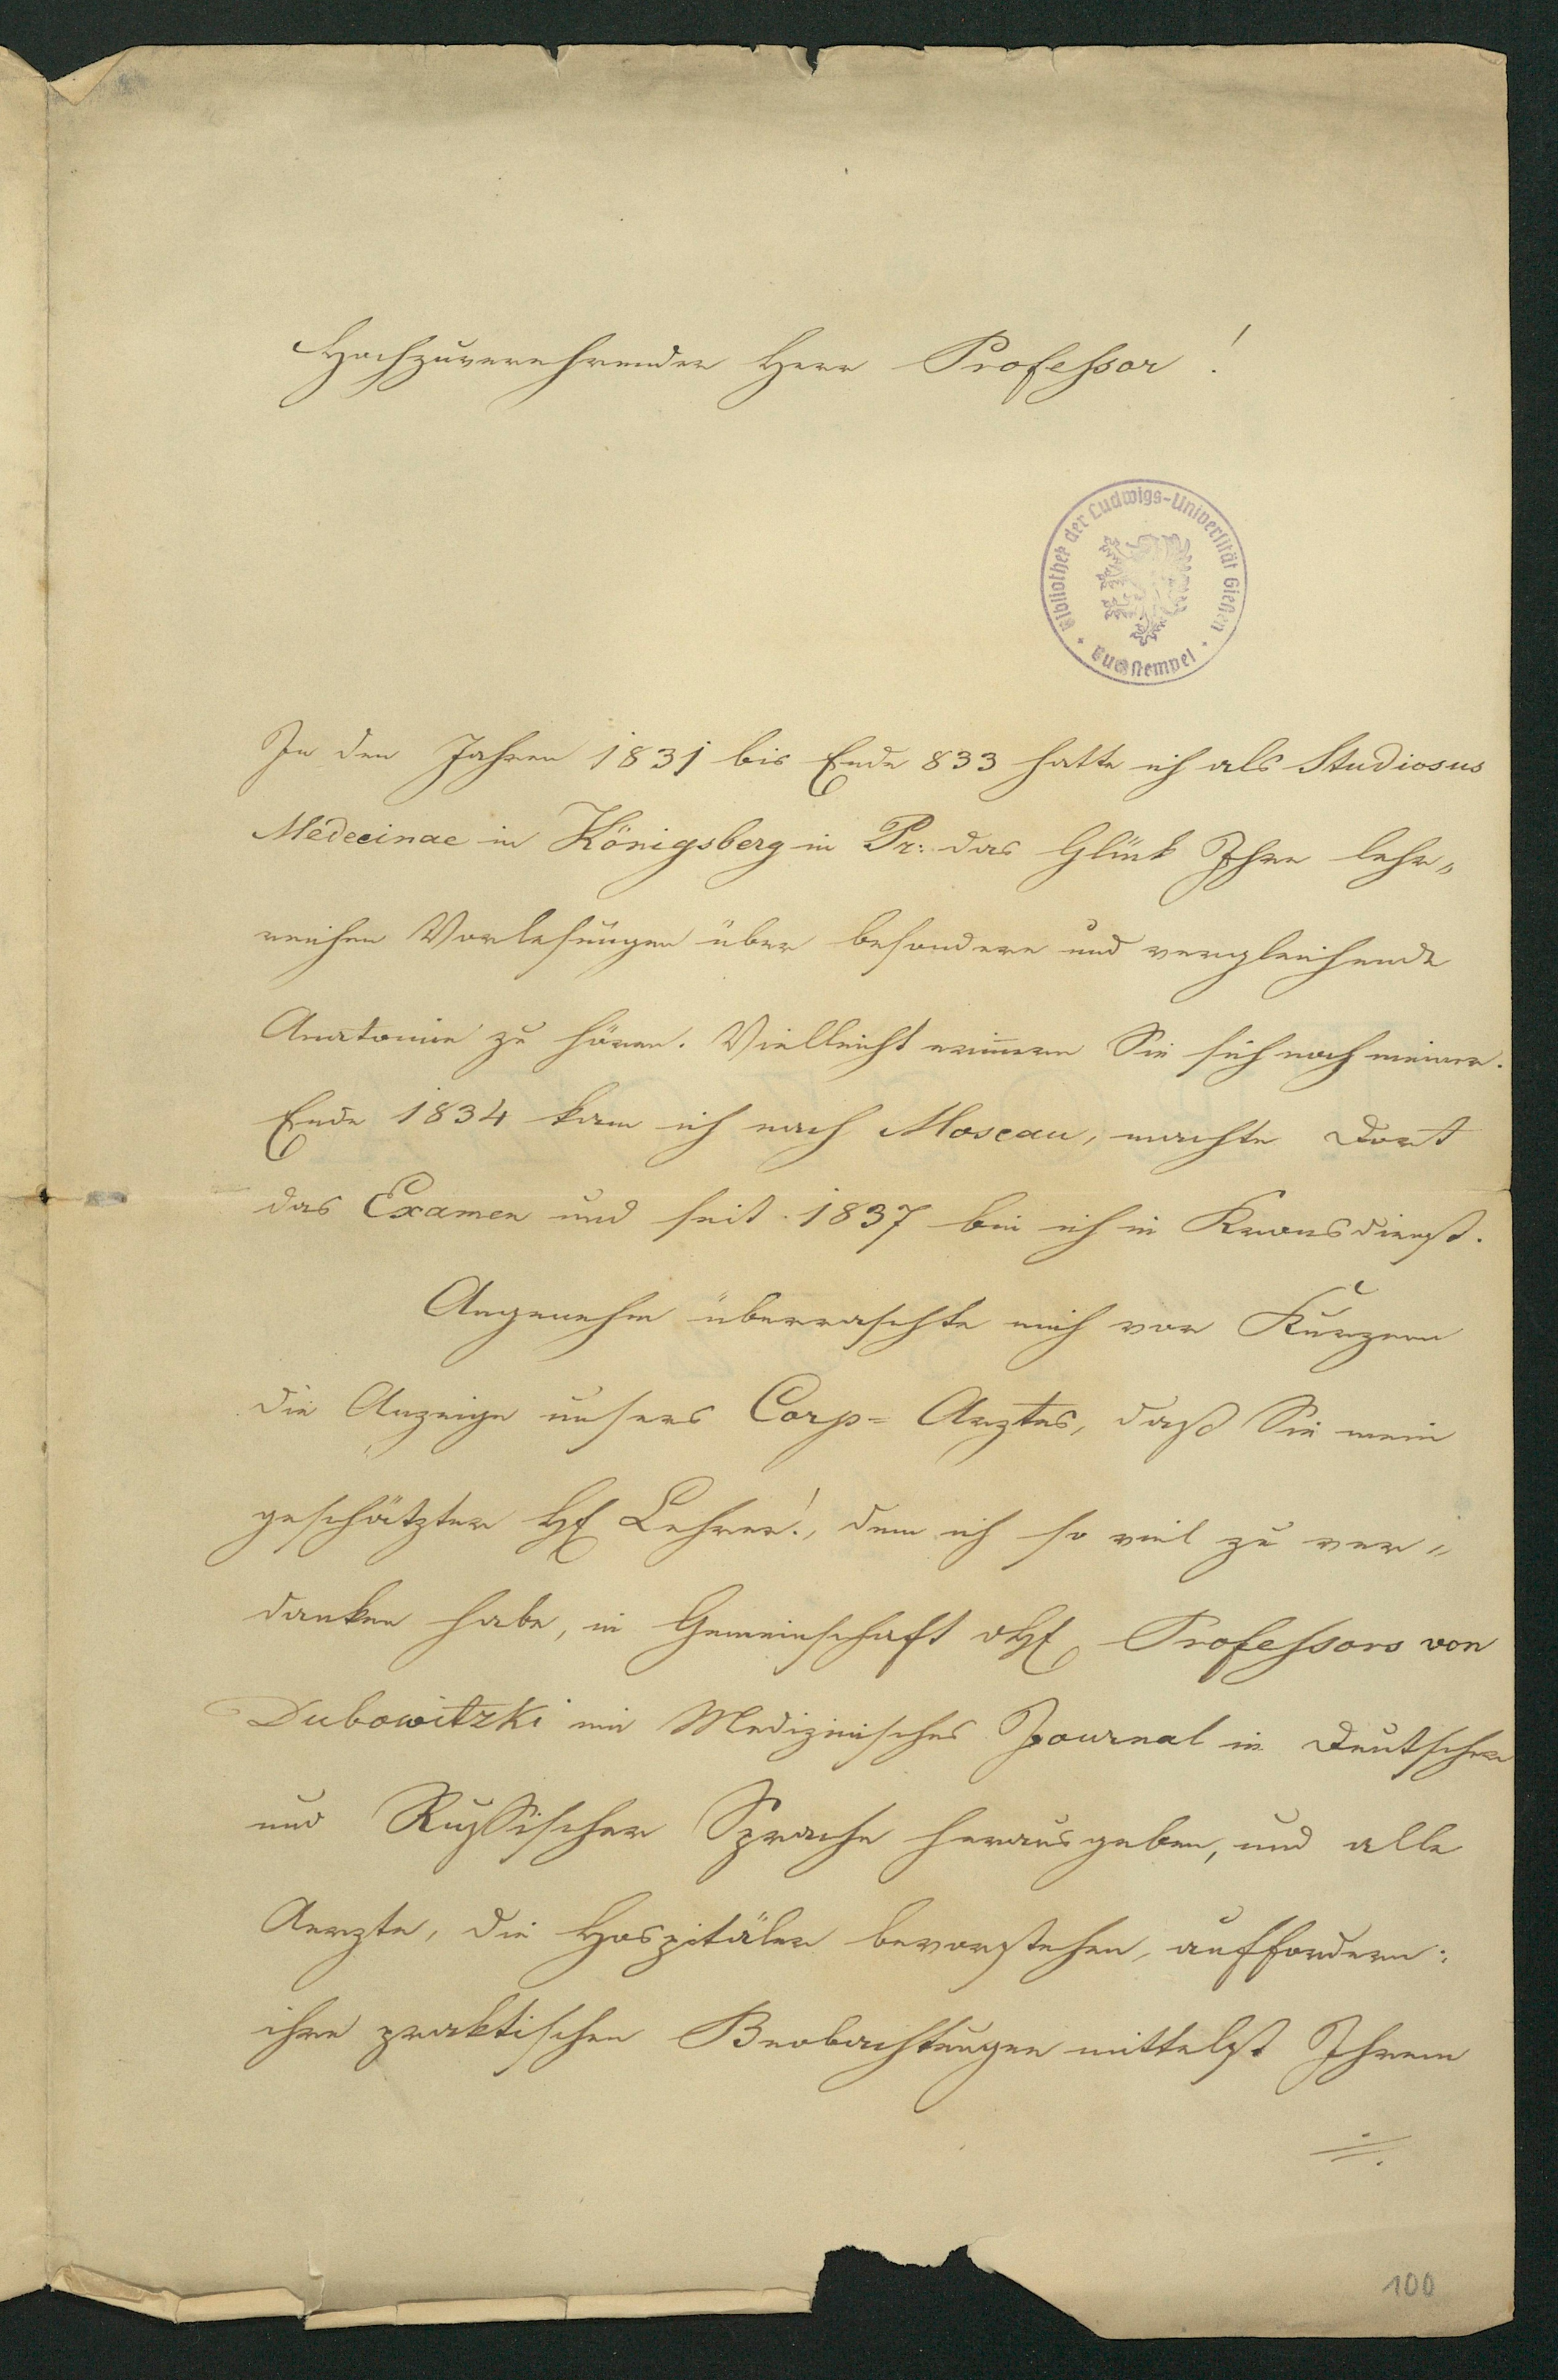 Hochzuverehrender Herr Professor!
Bibliothek der Ludwigs-Universität Gießen
Buchstempel
In den Jahren 1831 bis Ende 833 hatte ich als Studiosus
Medecinae in Königsberg in Pr: das Glück Ihre lehr„
reichen Vorlesungen über besondere und vergleichende
Anatomie zu hören. Vielleicht erinnern Sie sich noch meiner.
Ende 1834 kam ich nach Moscau, machte dort
das Examen und seit 1837 bin ich in Kronsdienst.
Angenehm überraschte mich vor Kurzem
die Anzeige unsers Corp= Arztes, daß Sie mein
geschätzter H Lehrer!, dem ich so viel zu ver„
danken habe, in Gemeinschaft d H Professors von
Dubowitzki ein Medizinisches Journal in Deutscher
und Rußischer Sprache herausgeben, und alle
Aerzte, die Hospitäler bevorstehen, auffordern:
ihre praktischen Beobachtungen mittelst Ihrem
100